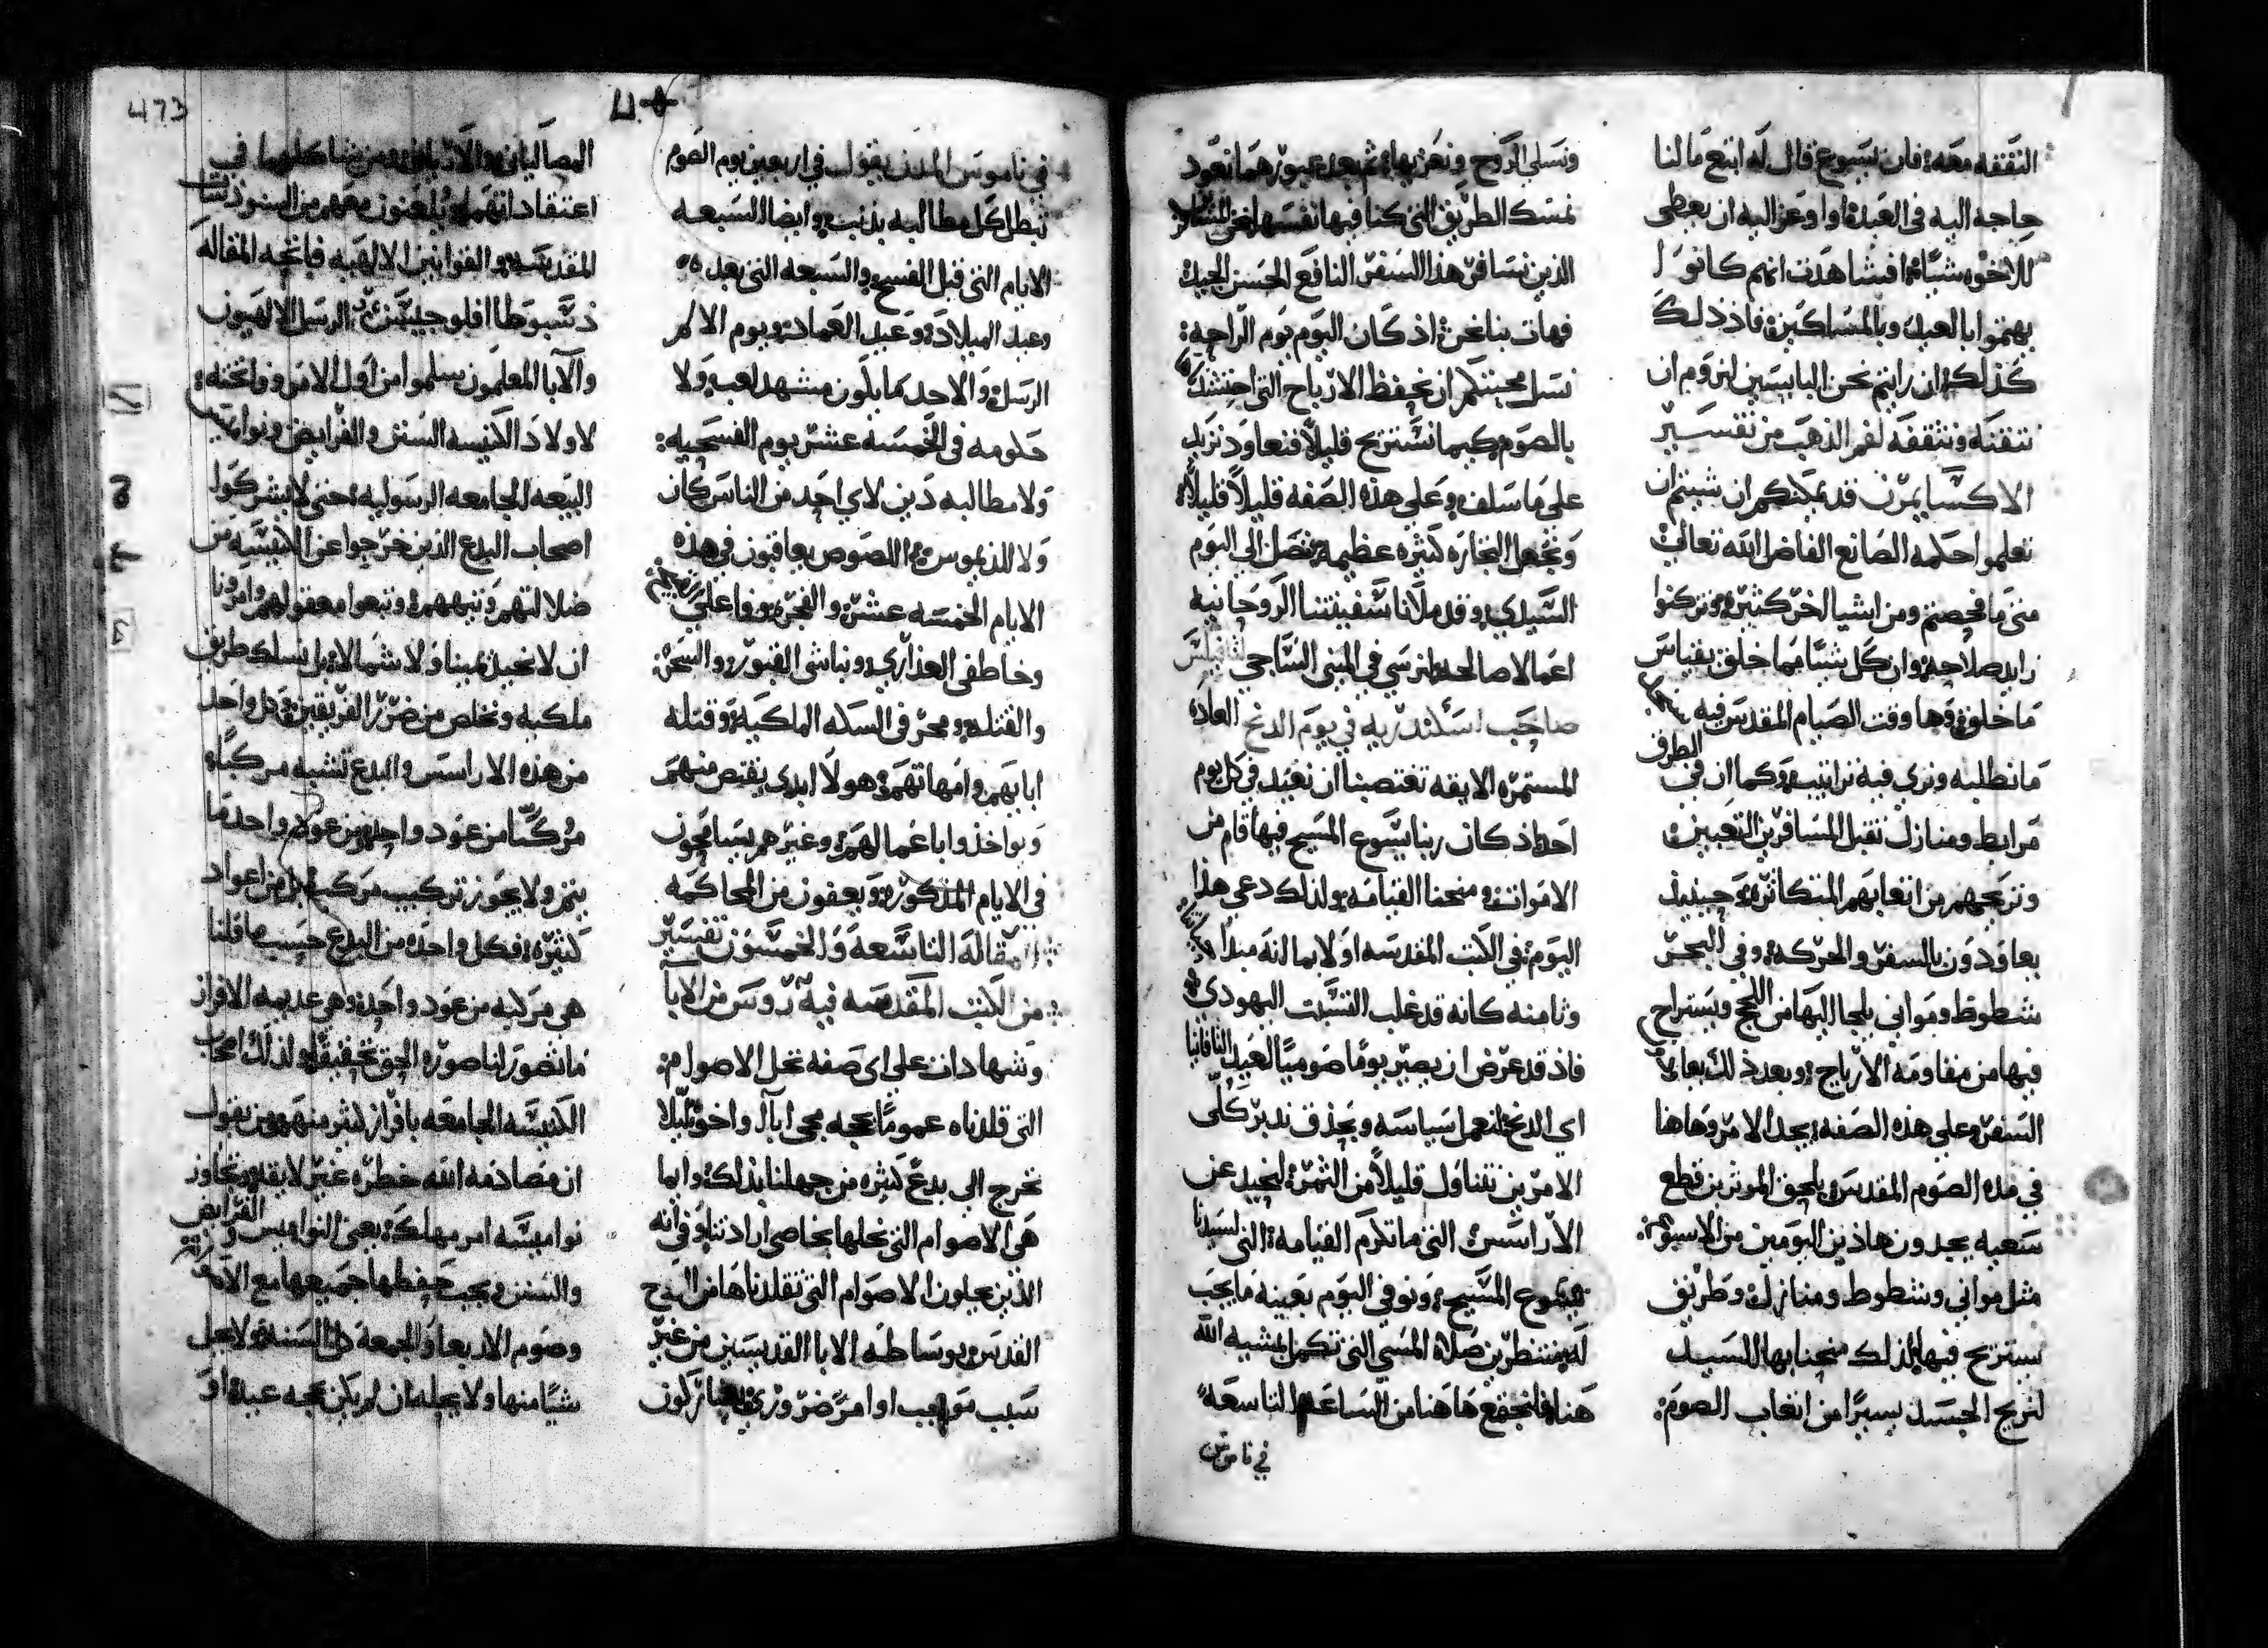 النفقه معه فان يسوع قال له ابتع ما لنا
حاجه اليه في العيد او اوعز اليه ان يعطى
للاخوه شيًا ما فشاهدت انهم كانوا
يهتموا بالعيد وبالمساكين فاذ ذلك
كذلك ان رايتم نحن البايسين لنروم ان
نتقنه ونثقفه لفم الذهب من تفسير
الاكسايمرن قد يمكنكم ان شيتم ان
تعلموا حكمه الصانع الفاضل الله تعالى
متى ما فحصتم ومن اشيا اخر كثيره وتركوا
زايد صلاحه وان كل شيًا مما خلق بقياس
ما خلق وها وقت الصيام المقدس فيه
ما نطلبه ونرى فيه تراتيب وكما ان في الطرق
مرابط ومنازل تقبل المسافرين التعبين
وتريحهم من اتعابهم المتكاثره وحينيذ
يعاودون بالسفر والحركه وفي البحر
شطوط ومواني يلجا اليها من اللجج ويستراح
فيها من مقاومه الارياح وبعد ذلك يعاود
السفر وعلى هذه الصفه يجد الامر وهاهنا
في مده الصوم المقدس يلحق الموثرين قطع
سعيه يجدون هاذين اليومين من الاسبوع
مثل مواني وشطوط ومنازل وطريق
يستريح فيها لذلك منحنا بها السيد
لنريح الجسد يسيرًا من اتعاب الصوم
ونسلى الروح ونعزيها ثم بعد عبورهما نعود
نمسك الطريق التي كنا فيها نفسها نحن
الذين نسافر هذا السفر النافع الحسن الجيد
فهات بنا نحن اذ كان اليوم يوم الراحه
نسل محبتكم ان نحفظ الارباح التي
بالصوم كيما نستريح قليلاً فنعاود نزيد
على ما سلف وعلى هذه الصفه قليلاً قليلاً
ونجعل التجاره كثيره عظيمه نصل الى اليوم
السيدي وقد ملانا سفينتنا الروحانيه
اعمالا صالحه لنرسي في المينى الساجي
صاحب اسكندريه في يوم الدنح العاده
المستمره الايقه تغتصبنا ان نعيد في كل يوم
احد اذ كان ربنا يسوع المسيح فيها قام من
الاموات ومنحنا القيامه ولذلك دعي هذا
اليوم في الكتب المقدسه اولا بما انه مبدا
وثامنه كانه قد غلب السبت اليهودي
فاذ قد عرض ان يصير يومًا صوميًا لعيد الثاوفانيا
اي الدنح لنعمل سياسه وبحذق ندبر كلى
الامرين نتناول قليلاً من الثمره لنحيد عن
الاراسس التي ما تكرم القيامه التي لسيدنا
يسوع المسيح ونوفي اليوم بعينه ما يجب
له منتظرين صلاة المسى التي تكمل بمشية الله
هنا فلنجتمع هاهنا من الساعه التاسعه
في ناموس
في ناموس المدن يقول في اربعين يوم الصوم
تبطل كل مطالبه بذنب وايضا السبعه
الايام التي قبل الفسح والسبعه التي بعده
وعيد الميلاد وعيد العماد ويوم الام
الرسل والاحد كما يلون مشهد لعب ولا
حكومه في الخمسه عشر يوم الفسحيه
ولا مطالبه دين لاي احد من الناس كان
ولا اللصوص يعاقبون في هذه
الايام الخمسه عشر والفجره
وخاطفى العذارى ونباشى القبور والسحره
والقتله ومحرفى السكه الملكيه وقتله
ابايهم وامهاتهم هولا ابدى يقتص منهم
ويواخذوا باعمالهم وغيرهم يسامحون
في الايام المذكوره ويعفون من المحاكمه
المقاله التاسعه والخمسون تفسير
من الكتب المقدسه فيه روس من الابا
وشهادات على اى صفه تحل الاصوام
التي قلدناه عمومًا بحجه مجى ابا او اخوه ليلا
نخرج الى بدع كثيره من جهلنا بذلك وايما
هي الاصوام التي نحلها بخاصى ارادتنا وفي انه
الذين يحلون الاصوام التي تقلدناها من الروح
القدس وبوساطه الابا القديسين من غير
سبب موجب او امر ضرورى يشاركون
المصاليانى والاريانى ومن شاكلهما في
اعتقاداتهم يلعنون معهم من السنودسات
المقدسه والقوانين الالهيه فاتحه المقاله
الرسل الالهيون
والابا المعلمون سلموا من اول الامر وفاتحته
لاولاد الكنيسه السنن والفرايض ونواميس
البيعه الجامعه الرسوليه حتى لا يشركوا
اصحاب البدع الذين خرجوا عن الكنيسه من
ضلالتهم وتيههم وتبعوا معقولهم وامرونا
ان لا نحيد يمينا ولا شمالا بل نسلك طريق
ملكيه ونخلص من ضرر الفريقين فكل واحد
من هذه الاراسس والبدع تشبه مركبًا
مركبًا من عود واحد ومن عود واحد ما
يتم ولا يجوز تركيب مركب بل من اعواد
كثيره فكل واحده من البدع حسب ما قلنا
هي مركبه من عود واحد وهي عديمه الافراز
ما تصور لنا صوره الحق تحقيقًا ولذلك اصحاب
الكنيسه الجامعه بافراز اكثر منهم من يقول
ان مصادمه الله خطره غير لايقه وتجاوز
نواميسه امر مهلكه يعنى النواميس والفرايض
والسنن ويجب حفظها جميعها مع الاصوام
وصوم الاربعا والجمعه كل السنه ولا يحل
شيًا منها ولا يحله ان لم يكن بحجه عيد او